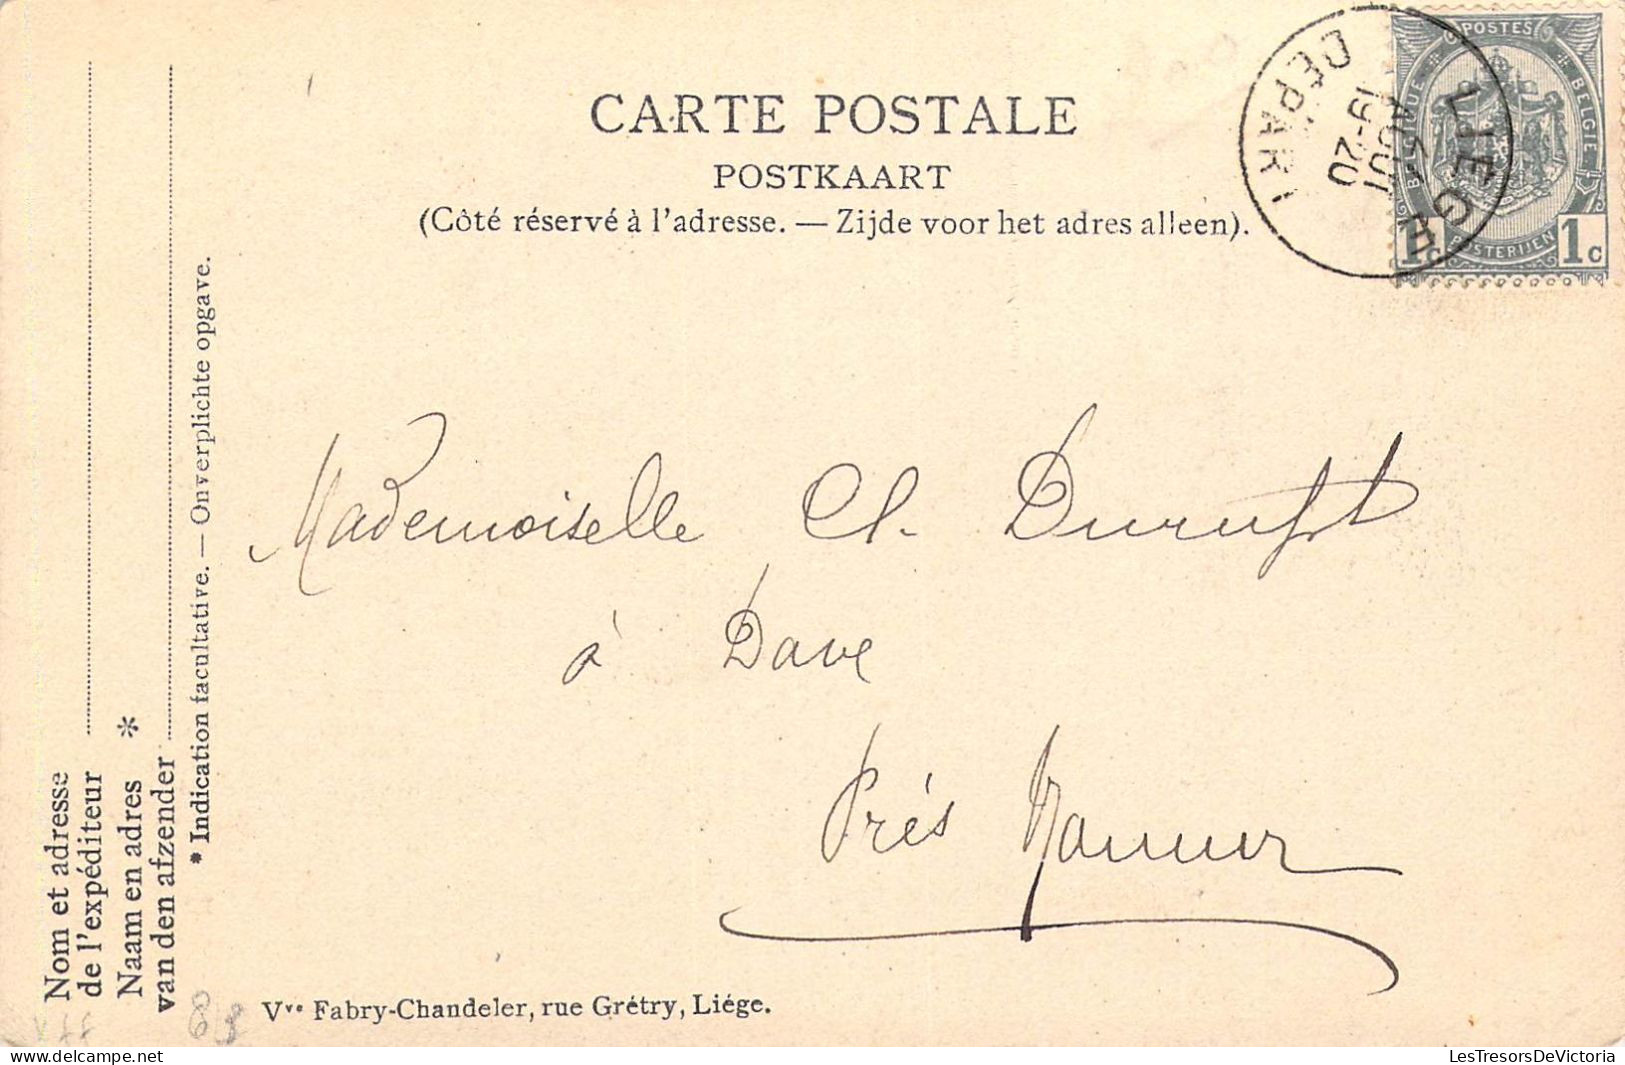 CARTE POSTALE
POSTKAART
(Côté réservé à l'adresse. — Zijde voor het adres alleen).
POSTES
BELGIQUE
BELGIE
POSTERIJEN
1c
1c
LIEGE
AOUT
19-20
DEPART
Mademoiselle Cl.
à Dave
Près Namur
Nom et adresse
de l'expéditeur
Naam en adres *
van den afzender
* Indication facultative. — Onverplichte opgave.
Vve Fabry-Chandeler, rue Grétry, Liége.
LesTresorsDeVictoria